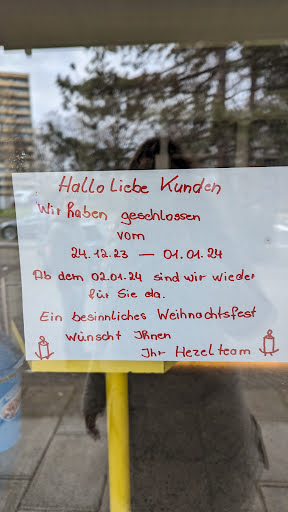 Hallo liebe Kunden
Wir haben geschlossen
vom
24.12.23 — 01.01.24
Ab dem 02.01.24 sind wir wieder
für Sie da.
Ein besinnliches Weihnachtsfest
wünscht Ihnen
Ihr Hezel team